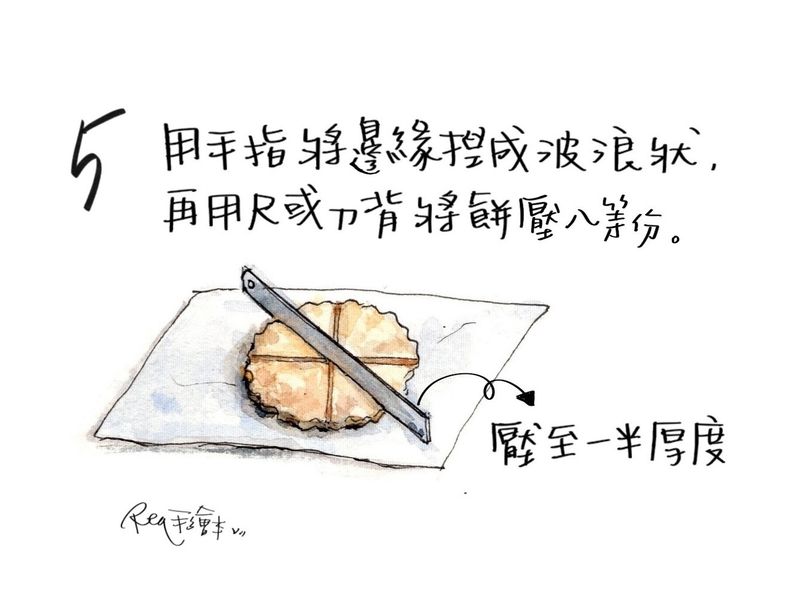 5
用手指將邊緣捏成波浪狀,
再用尺或刀背將餅壓八等份。
壓至一半厚度
Rea手繪本